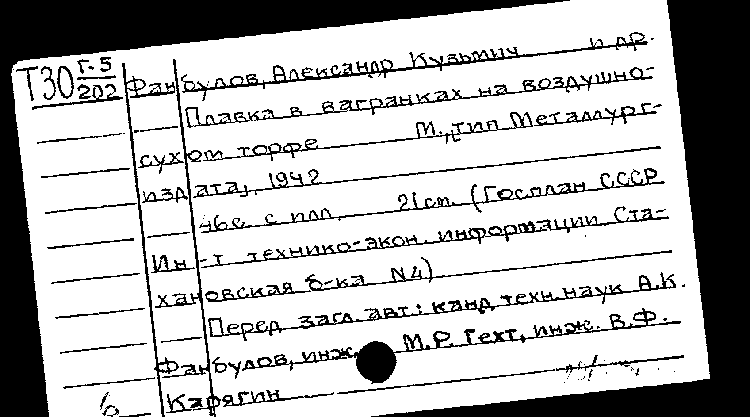 Т30 Г-5/202 Фанбулов, Александр Кузьмич и др.
Плавка в вагранках на воздушно-
сухом торфе М., тип Металлург-
издата, 1942
46с с илл. 21см. (Госплан СССР
Ин-т технико-экон. информации Ста-
хановская б-ка N4)
Перед загл. авт: канд. техн. наук А.К.
Фанбулов, инж. М.Р. Гехт, инж. В.Ф.
Карягин